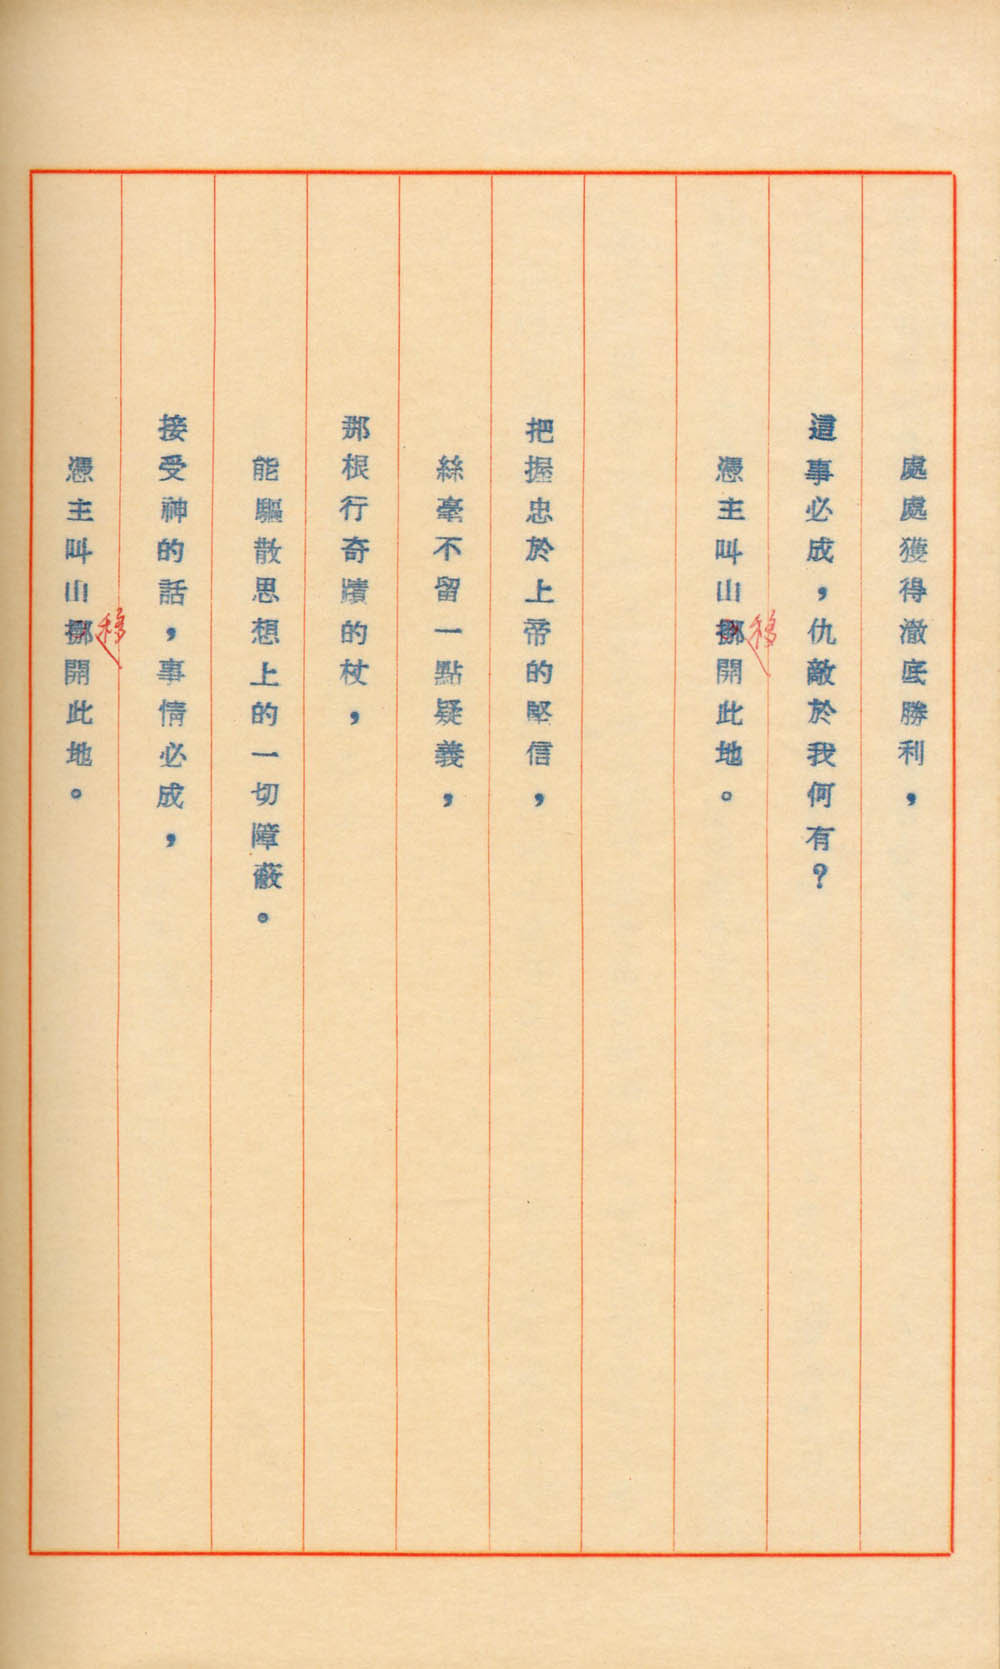 處處獲得澈底勝利，
這事必成，仇敵於我何有？
憑主叫山挪開此地。
移
把握忠於上帝的堅信，
絲毫不留一點疑義，
那根行奇蹟的杖，
能驅散思想上的一切障蔽。
接受神的話，事情必成，
憑主叫山挪開此地。
移